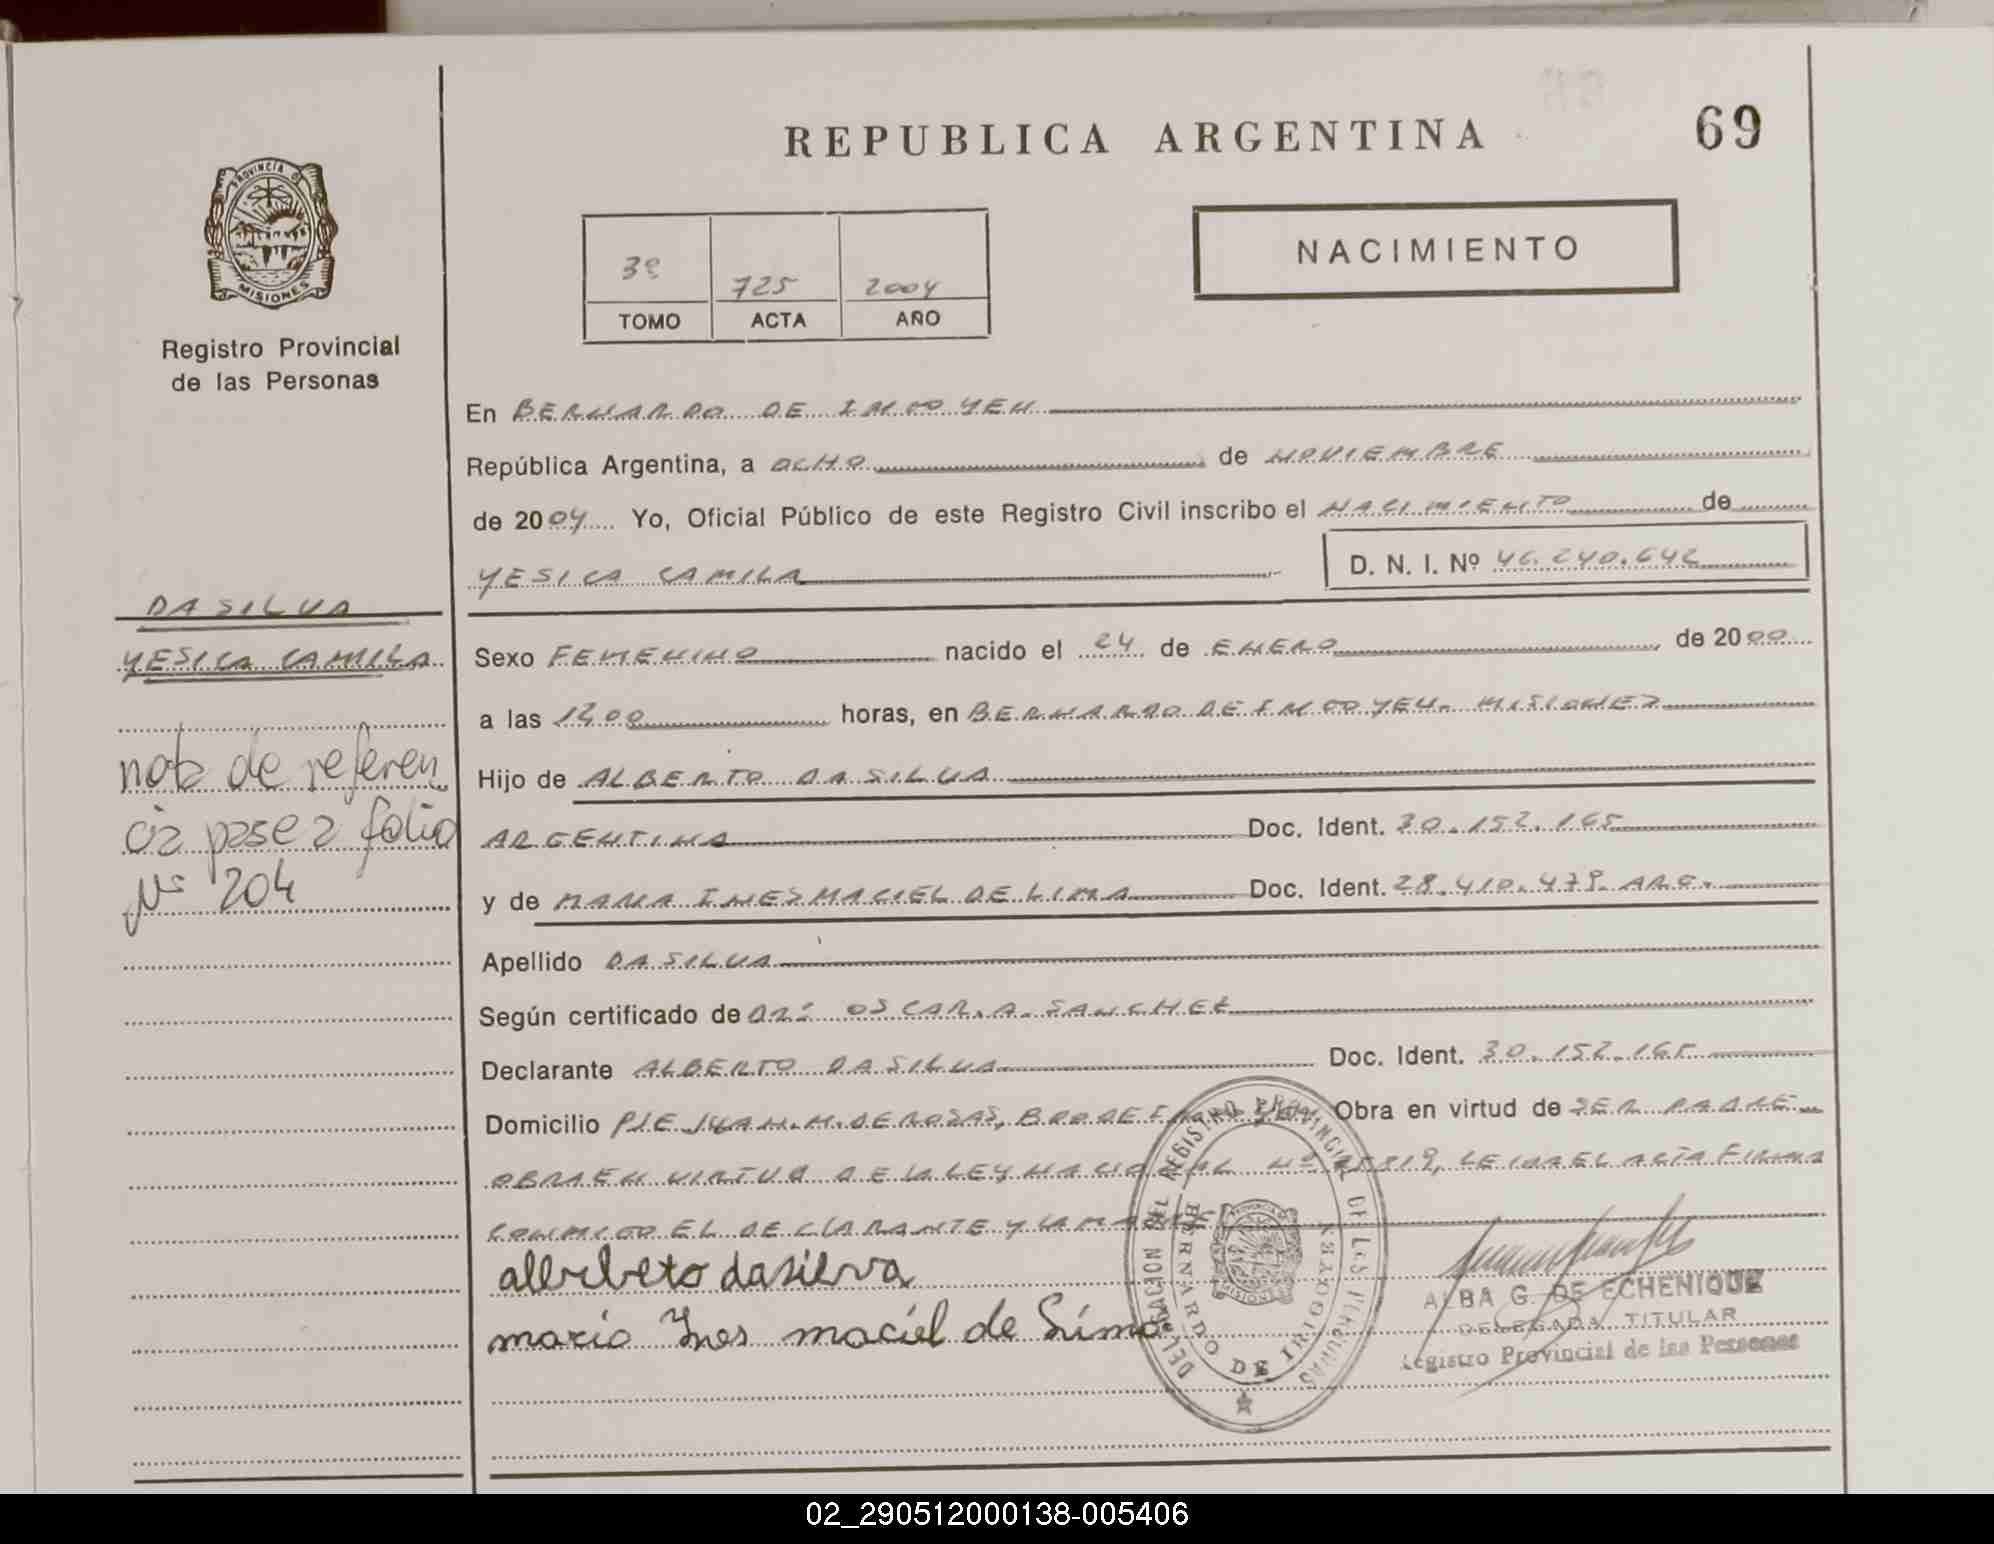 REPUBLICA ARGENTINA
69
PROVINCIA D
MISIONES
Registro Provincial
de las Personas
3º 725 2004
TOMO ACTA AÑO
NACIMIENTO
En BERNARDO DE IRIGOYEN
República Argentina, a OCHO de NOVIEMBRE
de 2004 Yo, Oficial Público de este Registro Civil inscribo el NACIMIENTO de
YESICA CAMILA D. N. I. Nº 46.240.642
DA SILVA
YESICA CAMILA
nota de referen
cia pase a folio
Nº 204
Sexo FEMENINO nacido el 24 de ENERO de 2000
a las 1200 horas, en BERNARDO DE IRIGOYEN. MISIONES
Hijo de ALBERTO DA SILVA
ARGENTINA Doc. Ident. 30.152.165
y de MARIA INES MACIEL DE LIMA Doc. Ident. 28.410.479. ARG.
Apellido DA SILVA
Según certificado de DR: OSCAR. A. SANCHEZ
Declarante ALBERTO DA SILVA Doc. Ident. 30.152.165
Domicilio PJE JUAN. M. DE ROSAS, BRDO DE IRIGOYEN Obra en virtud de SER PADRE
OBRA EN VIRTUD DE LA LEY NACIONAL Nº 25819, LEIDA EL ACTA FIRMA
CONMIGO EL DECLARANTE Y LA MADRE
alberbeto dasierva
maria Ines maciel de Lima
DELEGACION DEL REGISTRO PROVINCIAL DE LAS PERSONAS
BERNARDO DE IRIGOYEN
MISIONES
ALBA G. DE ECHENIQUE
DELEGADA TITULAR
Registro Provincial de las Personas
02_290512000138-005406